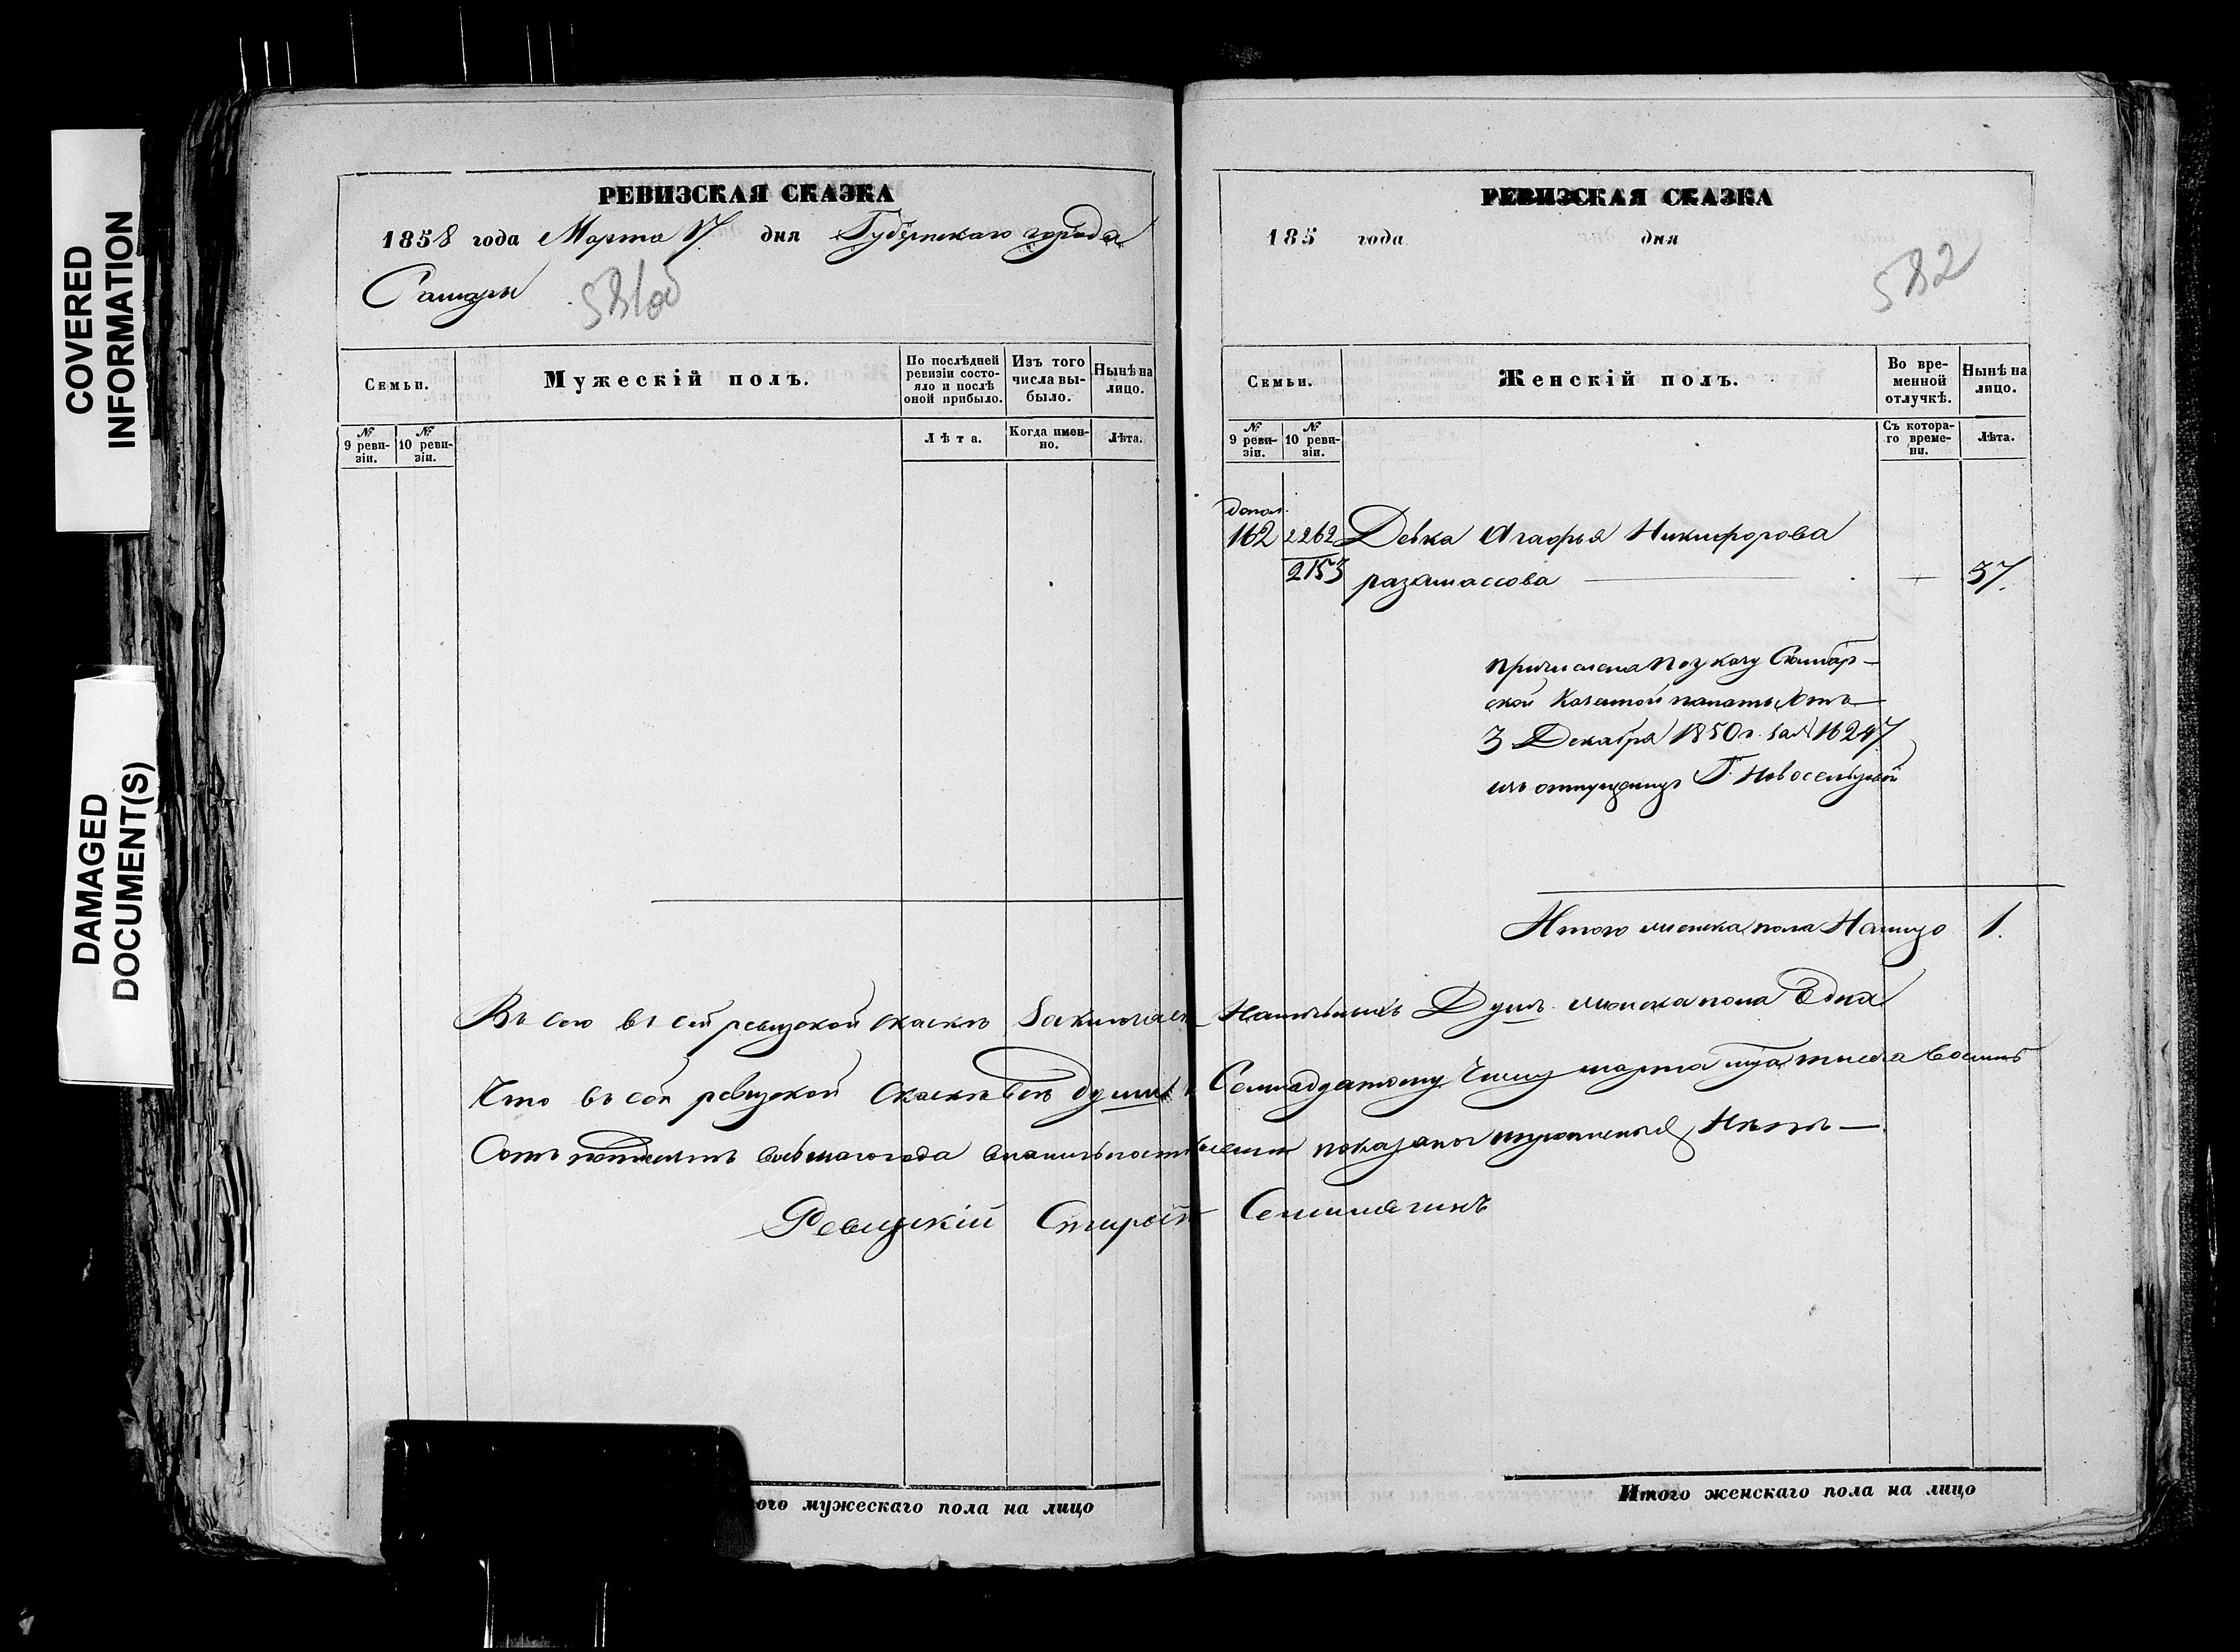 COVERED
INFORMATION
DAMAGED
DOCUMENT(S)
РЕВИЗСКАЯ СКАЗКА
1858 года Марта 17 дня Губернскаго города
Самары
581об
Семьи.
Мужескій полъ.
По послѣдней ревизіи состояло и послѣ оной прибыло.
Изъ того числа выбыло.
Нынѣ на лицо.
№ 9 ревизіи.
№ 10 ревизіи.
Лѣта.
Когда именно.
Лѣта.
РЕВИЗСКАЯ СКАЗКА
185 года дня
582
Семьи.
Женскій полъ.
Во временной отлучкѣ.
Нынѣ на лицо.
№ 9 ревизіи.
№ 10 ревизіи.
Съ котораго времени.
Лѣта.
допол.
162 2262 Девка Агафья Никифорова
2153 — 37.
причислена по указу Самар-
ской Казенной палаты отъ
3 Декабря 1850 г. за № 16247
изъ отпущенницъ Г. Новосельцовой
Итого женска пола Налицо 1.
Въ сего въ сей ревизской скаскѣ Заключает Наличныхъ Душъ женска пола Одна
Что въ сей ревизской скаскѣ все души к Семнадцатому Числу марта тысяча восемь
Сотъ пятдесятъ восьмаго года вналичности показаны и пропущеныхъ Нѣтъ —
Ревизкій Старост
ого мужескаго пола на лицо
Итого женскаго пола на лицо